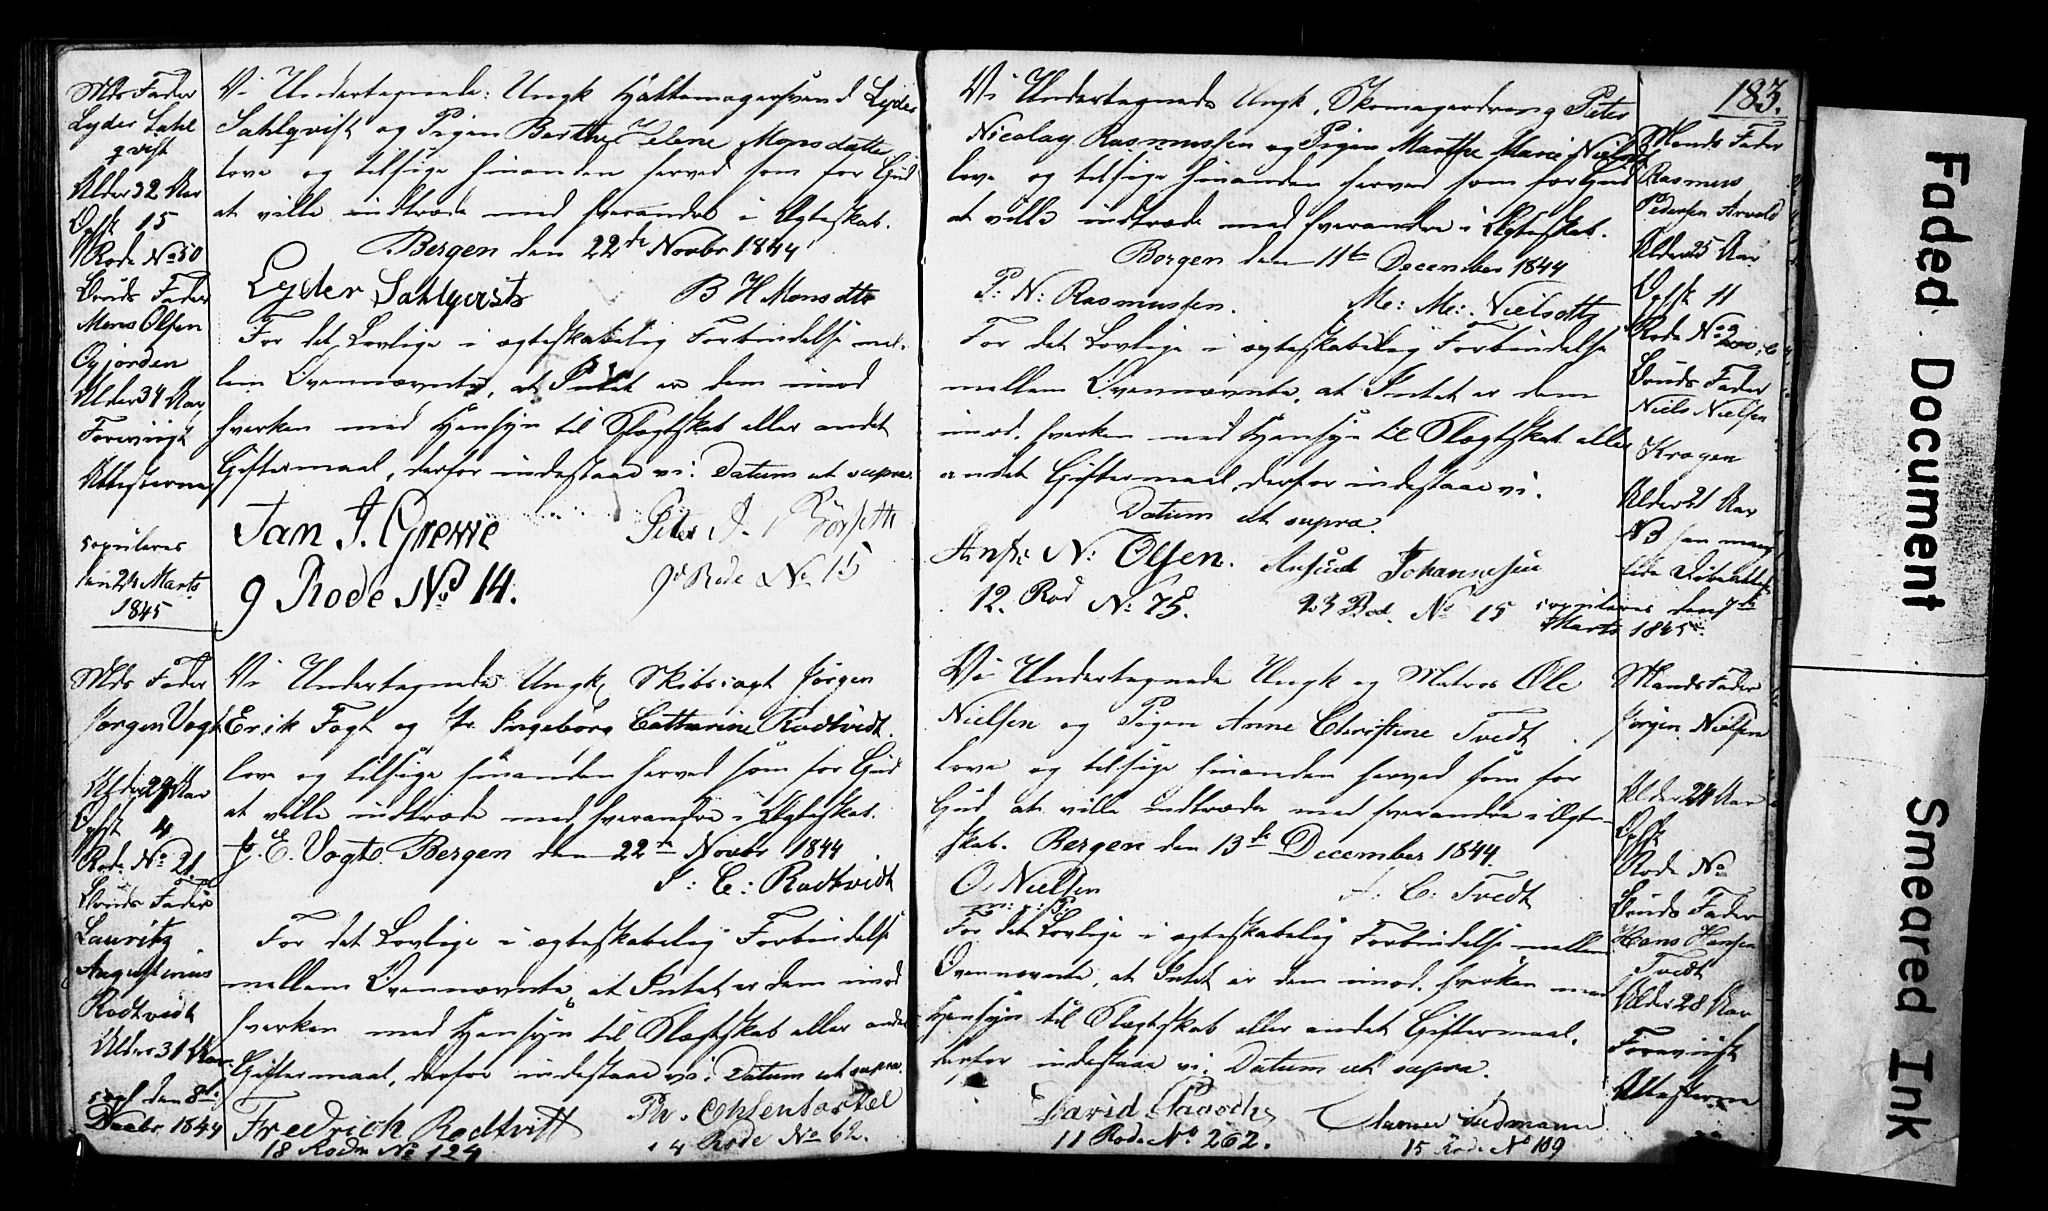 Mds Fader
Lyder Sahl
qvist
Alder 32 Aar
Opst 15
Rode No 50
Bruds Fader
Mons Olsen
Gjorden
Alder 34 Aar
Forevrigt
Attesterne
copuleres
den 24 Marts
1845
Vi Undertegnede: Ungk Hattemagersvend Lyder
Sahlqvist og Pigen Berthe Helene Monsdatter
love og tilsige hinanden herved som for Gud
at ville indtræde med hverandre i Ægteskab.
Bergen den 22de Novbr 1844
Lyder Sahlqvist B H Monsdtr
For det Lovlige i ægteskabelig Forbindelse mel-
lem Ovennævnte, at Intet er dem imod
hverken med Hensyn til Slægtskab eller andet
Giftermaal, derfor indestaae vi. Datum ut supra.
Jan J. Greve Peter J.
9 Rode No 14. 9de Rode No 15
Mds Fader
Jørgen Vogt
Alder 29 Aar
Opst 4
Rode No 21
Bruds Fader
Lauritz
Augustinus
Rodtvidt
Alder 31 Aar
copl den 8de
Decbr 1844
Vi Undertegnede Ungk Skibs:agt Jørgen
Erik Fogt og Pr. Ingeborg Catharine Rodtvidt.
love og tilsige hinanden herved som for Gud
at ville indtræde med hverandre i Ægteskab.
J. E. Vogt Bergen den 22de Novbr 1844
I: C: Rodtvidt
For det Lovlige i ægteskabelig Forbindelse
mellem Ovennævnte, at Intet er dem imod
hverken med Hensyn til Slægtskab eller andet
Giftermaal, derfor indestaae vi. Datum ut supra.
Fredrich Rodtvitt
18 Rode No 124 14 Rode No 62.
183.
Vi Undertegnede Ungk. Skomagerdreng Peter
Nicolay Rasmussen og Pigen Marthe Marie Nielsdtr
love og tilsige hinanden herved som for Gud
at ville indtræde med hverandre i Ægteskab.
Bergen den 11te December 1844
P: N: Rasmussen. M: M: Nielsdtr
For det Lovlige i ægteskabelig Forbindelse
mellem Ovennævnte, at Intet er dem
imod. hverken med Hensyn til Slægtskab eller
andet Giftermaal, derfor indestaae vi.
Datum ut supra.
N: Olsen. Johannesen
12. Rod No 75. 23 Rod. No 15
Mands Fader
Rasmus
Pedersen Arvold
Alder 25 Aar
Opst 11
Rode No
Bruds Fader
Niels Nielsen
Kragen
Alder 21 Aar
copuleres den 7de
Marts 1845.
Vi Undertegnede Ungk og Matros Ole
Nielsen og Pigen Anne Christine Tvedt
love og tilsige hinanden herved som for
Gud at ville indtræde med hverandre i Ægte-
skab. Bergen den 13de December 1844
O Nielsen A: C: Tvedt
m: p: P:
For det Lovlige i ægteskabelig Forbindelse mellem
Ovennævnte, at Intet er dem imod. hverken med
Hensyn til Slægtskab eller andet Giftermaal,
derfor indestaae vi. Datum ut supra.
David
11 Rode No 262. 15 Rode No 109
Mands Fader
Jørgen Nielsen
Alder 24 Aar
Opst
Rode No
Bruds Fader
Hans Hansen
Tvedt
Alder 28 Aar
Forevrigt
Attesterne
Faded Document
Smeared Ink